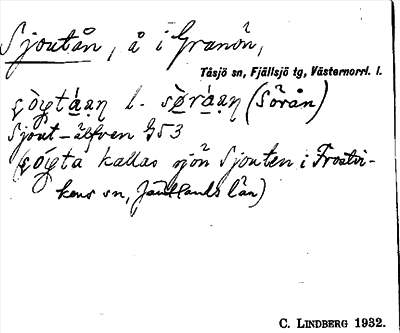 Sjoutån, å i Granön,
Tåsjö sn, Fjällsjö tg, Västernorrl. l.
l. (Sörån)
Sjout-älfven G53
kallas sjön Sjouten i Frostvi-
kens sn, Jämtlands län)
C. LINDBERG 1932.